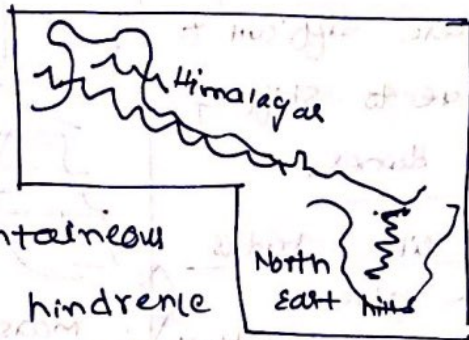 Himalayas
ntaineous
hindrence
North
East hills